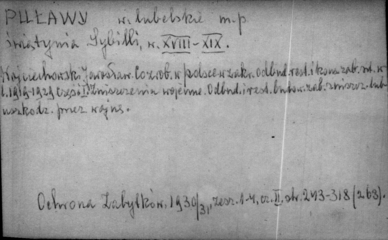 PUŁAWY w. lubelskie m.p.
świątynia Sybilli, w. XVIII-XIX.
Wojciechowski Jarosław. Co zrob. w Polsce w zakr. odbud. rest. i konserw. zab. w
l. 1919-1929 Część I. Zniszczenia wojenne. Odbud. i rest. budow. zab. zniszcz. lub
uszkodz. przez wojnę.
Ochrona Zabytków. 1930/31, zesz. 1-4, cz. II. str. 243-318 (263).